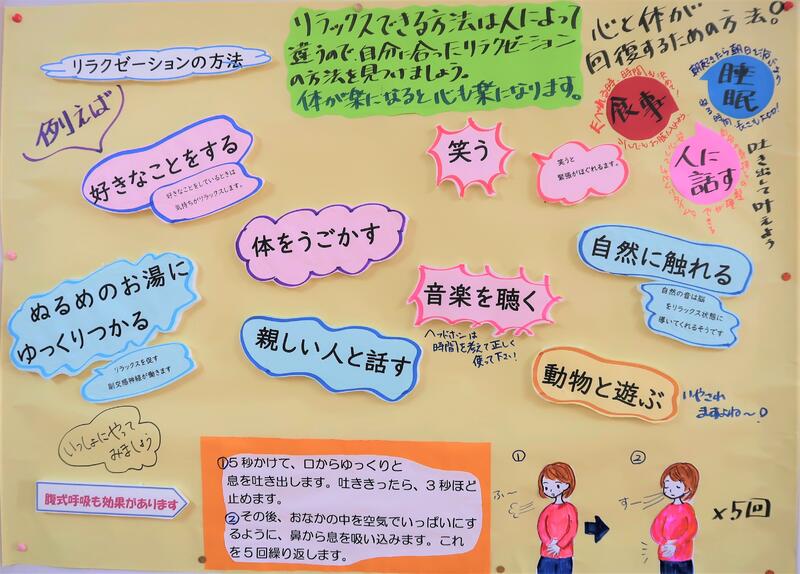 リラクゼーションの方法
リラックスできる方法は人によって
違うので、自分に合ったリラクゼーション
の方法を見つけましょう。
体が楽になると心も楽になります。
心と体が
回復するための方法!
食事
睡眠
人に
話す
吐き出して叶えよう
例えば
好きなことをする
好きなことをしているときは
気持ちがリラックスします。
笑う
笑うと
緊張がほぐれます。
体をうごかす
自然に触れる
自然の音は脳
をリラックス状態に
導いてくれるそうです
ぬるめのお湯に
ゆっくりつかる
リラックスを促す
副交感神経が働きます
音楽を聴く
ヘッドホンは
時間を考えて正しく
使って下さい!
親しい人と話す
動物と遊ぶ
いやされ
ますよね~!
いっしょにやって
みましょう
腹式呼吸も効果があります
①5秒かけて、口からゆっくりと
息を吐き出します。吐ききったら、3秒ほど
止めます。
②その後、おなかの中を空気でいっぱいにす
るように、鼻から息を吸い込みます。これ
を5回繰り返します。
①
ふ~
②
すー
×5回